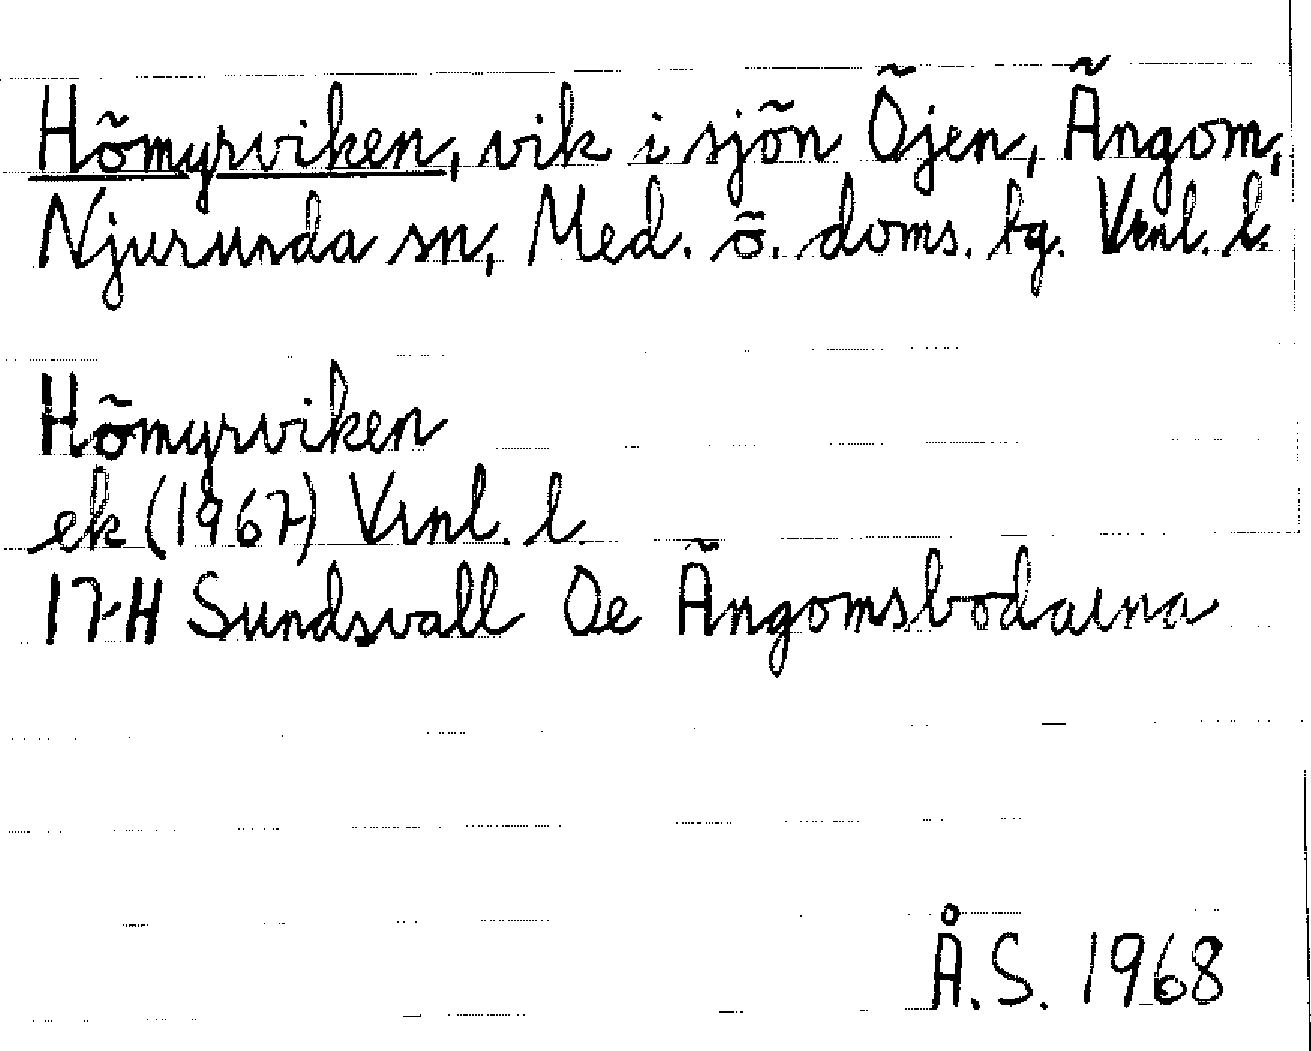 Hömyrviken, vik i sjön Öjen, Ängom,
Njurunda sn, Med. ö. doms. tg. Vrnl. l.
Hömyrviken
ek (1967) Vrnl. l.
17H Sundsvall Oe Ängomsbodarna
Å.S. 1968